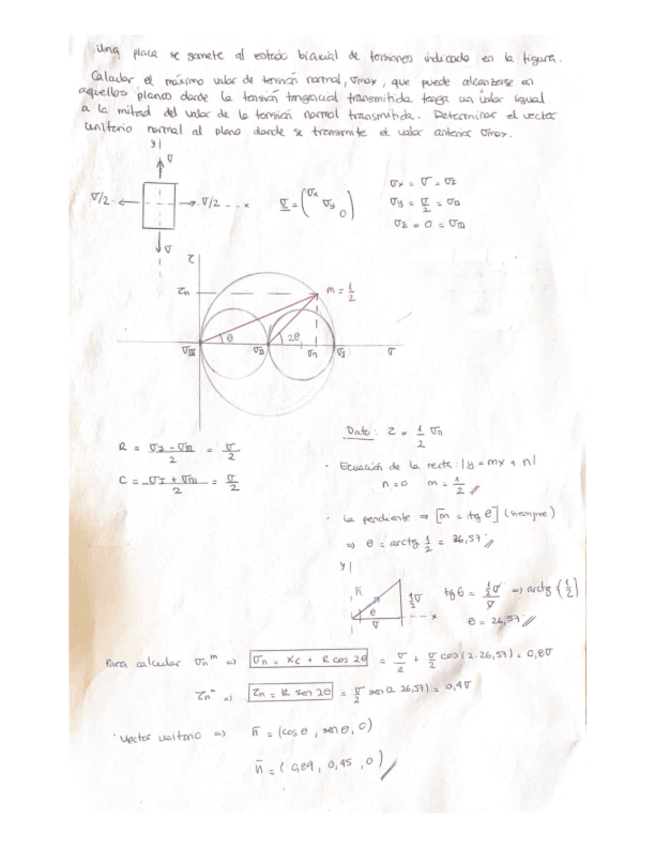 Una placa se somete al estado biaxial de tensiones indicado en la figura.
Calcular el máximo valor de tensión normal, σmax, que puede alcanzarse en
aquellos planos donde la tensión tangencial transmitida tenga un valor igual
a la mitad del valor de la tensión normal transmitida. Determinar el vector
unitario normal al plano donde se transmite el valor anterior σmax.
y|
σ
σ/2 σ/2 x
σ = (σx σy 0)
σ
σx = σ = σI
σy = σ/2 = σII
σz = 0 = σIII
τ
τn m = 1/2
θ 2θ
σIII σII σn σI σ
R = σI - σIII / 2 = σ/2
C = σI + σIII / 2 = σ/2
Dato: τ = 1/2 σn
· Ecuación de la recta: |y = mx + n|
n=0 m = 1/2 //
· La pendiente ⇒ [m = tg θ] (siempre)
⇒ θ = arctg 1/2 = 26,57 //
y|
n
θ 1/2σ
σ x
tgθ = 1/2σ / σ ⇒ arctg (1/2)
θ = 26,57 //
Para calcular σn^m ⇒ σn = Xc + R cos 2θ = σ/2 + σ/2 cos(2·26,57) = 0,8σ
τn^m ⇒ τn = R sen 2θ = σ/2 sen(2·26,57) = 0,4σ
· Vector unitario ⇒ n = (cosθ, senθ, 0)
n = (0,89, 0,45, 0) //